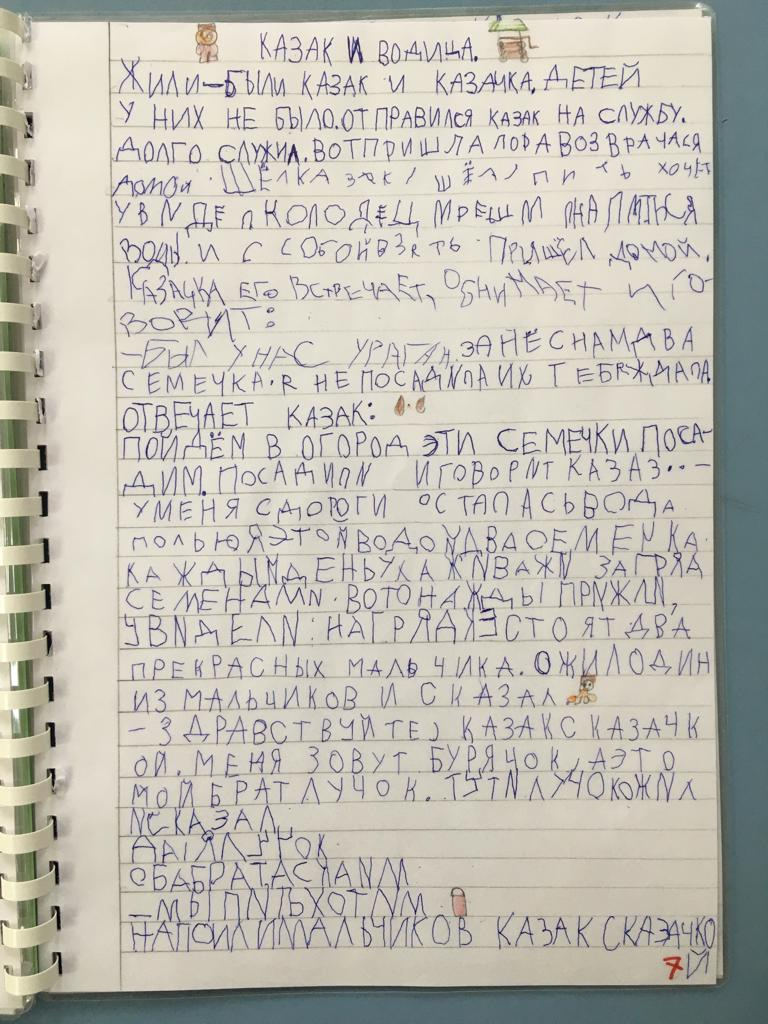 КАЗАК И ВОДИЦА.
ЖИЛИ-БЫЛИ КАЗАК И КАЗАЧКА. ДЕТЕЙ
У НИХ НЕ БЫЛО. ОТПРАВИЛСЯ КАЗАК НА СЛУЖБУ.
ДОЛГО СЛУЖИЛ. ВОТ ПРИШЛА ПОРА ВОЗВРАЧАСЯ
ДОМОЙ. ШЁЛ КАЗАК, ШЁЛ, ПИТЬ ХОЧЕТ
УВИДЕЛ КОЛОДЕЦ И РЕШИЛ НАПИТЬСЯ
ВОДЫ. И С СОБОЙ ВЗЯТЬ. ПРИШЁЛ ДОМОЙ.
КАЗАЧКА ЕГО ВСТРЕЧАЕТ, ОБНИМАЕТ И ГО-
ВОРИТ:
-БЫЛ У НАС УРАГАН. ЗАНЁС НАМ ДВА
СЕМЕЧКА. Я НЕ ПОСАДИЛА ИХ ТЕБЯ ЖДАЛА.
ОТВЕЧАЕТ КАЗАК:
ПОЙДЁМ В ОГОРОД ЭТИ СЕМЕЧКИ ПОСА-
ДИМ. ПОСАДИЛИ И ГОВОРИТ КАЗАЗ..-
У МЕНЯ С ДОРОГИ ОСТАЛАСЬ ВОДА
ПОЛЬЮ Я ЭТОЙ ВОДОЙ ДВА СЕМЕНКА.
КАЖДЫЙ ДЕНЬ УХАЖИВАЖИ ЗА ГРЯД
СЕМЕНАМИ. ВОТ ОНАЖДЫ ПРИЖЛИ,
УВИДЕЛИ: НА ГРЯДКЕ СТОЯТ ДВА
ПРЕКРАСНЫХ МАЛЬЧИКА. ОЖИЛ ОДИН
ИЗ МАЛЬЧИКОВ И СКАЗАЛ
- ЗДРАВСТВУЙТЕ, КАЗАК С КАЗАЧК
ОЙ. МЕНЯ ЗОВУТ БУРЯЧОК, А ЭТО
МОЙ БРАТ ЛУЧОК. ТУТ И ЛУЧОК ОЖИЛ
И СКАЗАЛ
ДА! Я ЛУЧОК
ОБА БРАТА СКАЗАЛИ
- МЫ ПИТЬ ХОТИМ
НАПОИЛИ МАЛЬЧИКОВ КАЗАК С КАЗАЧКО
Й
7